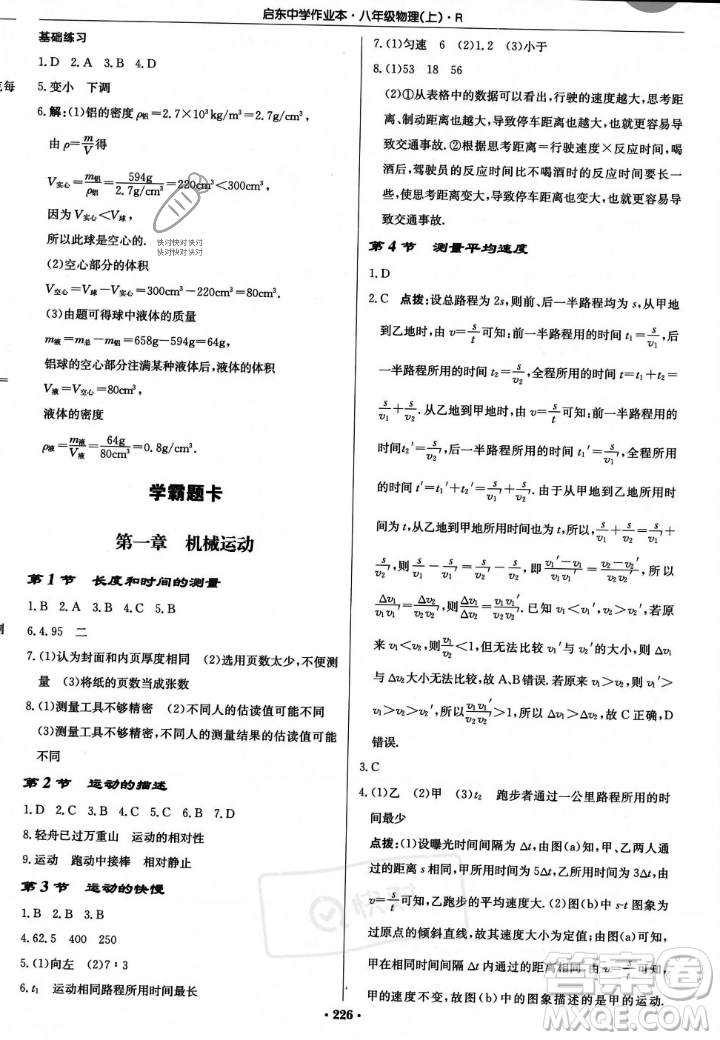 启东中学作业本·八年级物理(上)·R
基础练习
1.D 2.A 3.B 4.D
5.变小 下调
6.解:(1)铝的密度ρ铝=2.7×10³kg/m³=2.7g/cm³,
由ρ=m/V得
V实心=m铝/ρ铝=594g/2.7g/cm³=220cm³<300cm³,
因为V实心<V球,
所以此球是空心的.
(2)空心部分的体积
V空心=V球-V实心=300cm³-220cm³=80cm³
(3)由题可得球中液体的质量
m液=m总-m铝=658g-594g=64g
铝球的空心部分注满某种液体,液体的体积
V液=V空心=80cm³,
液体的密度
ρ液=m液/V液=64g/80cm³=0.8g/cm³.
快对快对快对
快对快对快对
学霸题卡
第一章 机械运动
第1节 长度和时间的测量
1.B 2.A 3.B 4.C 5.B
6.4.95 二
7.(1)认为封面和内页厚度相同 (2)选用页数太少,不便测
量 (3)将纸的页数当成张数
8.(1)测量工具不够精密 (2)不同人的估读值可能不同
(3)测量工具不够精密、不同人测量结果的估读值可能
不同
第2节 运动的描述
1.D 2.A 3.C 4.C 5.B 6.B 7.D
8.轻舟已过万重山 运动的相对性
9.运动 跑动中接棒 相对静止
第3节 运动的快慢
1.B 2.B 3.C
4.62.5 400 250
5.(1)向左 (2)7∶3
6.t₁ 运动相同路程所用时间最长
7.(1)匀速 6 (2)1.2 (3)小于
8.(1)53 18 56
(2)①从表格中的数据可以看出,行驶的速度越大,思考距
离、制动距离也越大,导致停车距离也越大,更容易导
致交通事故.②酒后驾车,由于酒精麻痹人的神经系
统,驾驶员的反应时间比不喝酒时的反应时间要长一
些,使得思考距离变大,导致停车距离变大,容易导致
交通事故.
第4节 测量平均速度
1.D
2.C 点拨:设总路程为2s,则前、后一半路程为s,从甲地
到乙地方向,由v=s/t可知:前一半路程所用的时间t₁=s/v₁,
后一半路程所用的时间t₂=s/v₂,全程所用的时间t=t₁+t₂=
s/v₁+s/v₂.从乙地到甲地时,由v=s/t可知:前一半路程所用的
时间t₂′=s/v₂′,后一半路程所用的时间t₁′=s/v₁′,全程所用的
时间t′=t₁′+t₂′=s/v₁′+s/v₂′.由于从甲地到乙地所用的
时间为t,从乙地到甲地所用的时间也为t,所以s/v₁+s/v₂=s/v₁′+
s/v₂′,s/v₁-s/v₁′=s/v₂′-s/v₂,即(v₁′-v₁)/(v₁v₁′)=(v₂-v₂′)/(v₂v₂′),
所以Δv₁/(v₁v₁′)=Δv₂/(v₂v₂′),所以Δv₁/Δv₂=v₁v₁′/v₂v₂′.已知v₁>v₂,若原
来v₁<v₁′、v₂>v₂′,但无法比较v₁′与v₂′的大小,则Δv₁与Δv₂
大小无法比较,故A、B错误.若原来v₁>v₂,且v₁′>
v₂′,所以v₁v₁′/v₂v₂′>1,则Δv₁>Δv₂,故C正确,D
错误.
3.C
4.(1)乙 (2)甲 (3)t₂ 跑步者通过一公里路程所用的时
间最少
点拨:(1)设曝光时间间隔为Δt,由图(a)可知,甲、乙两人通
过的距离s相同,甲所用的时间为5Δt,乙所用的时间为4Δt,
由v=s/t可知,乙的运动速度大;(2)图(b)中的s-t图象为
过原点的倾斜直线,故该物体的运动速度大小为定值;由图(a)可知,
甲在相同时间间隔Δt内通过的距离相同,由v=s/t可知,
甲的速度不变,故图(b)中的图象描述的是甲的运动.
·226·
快对